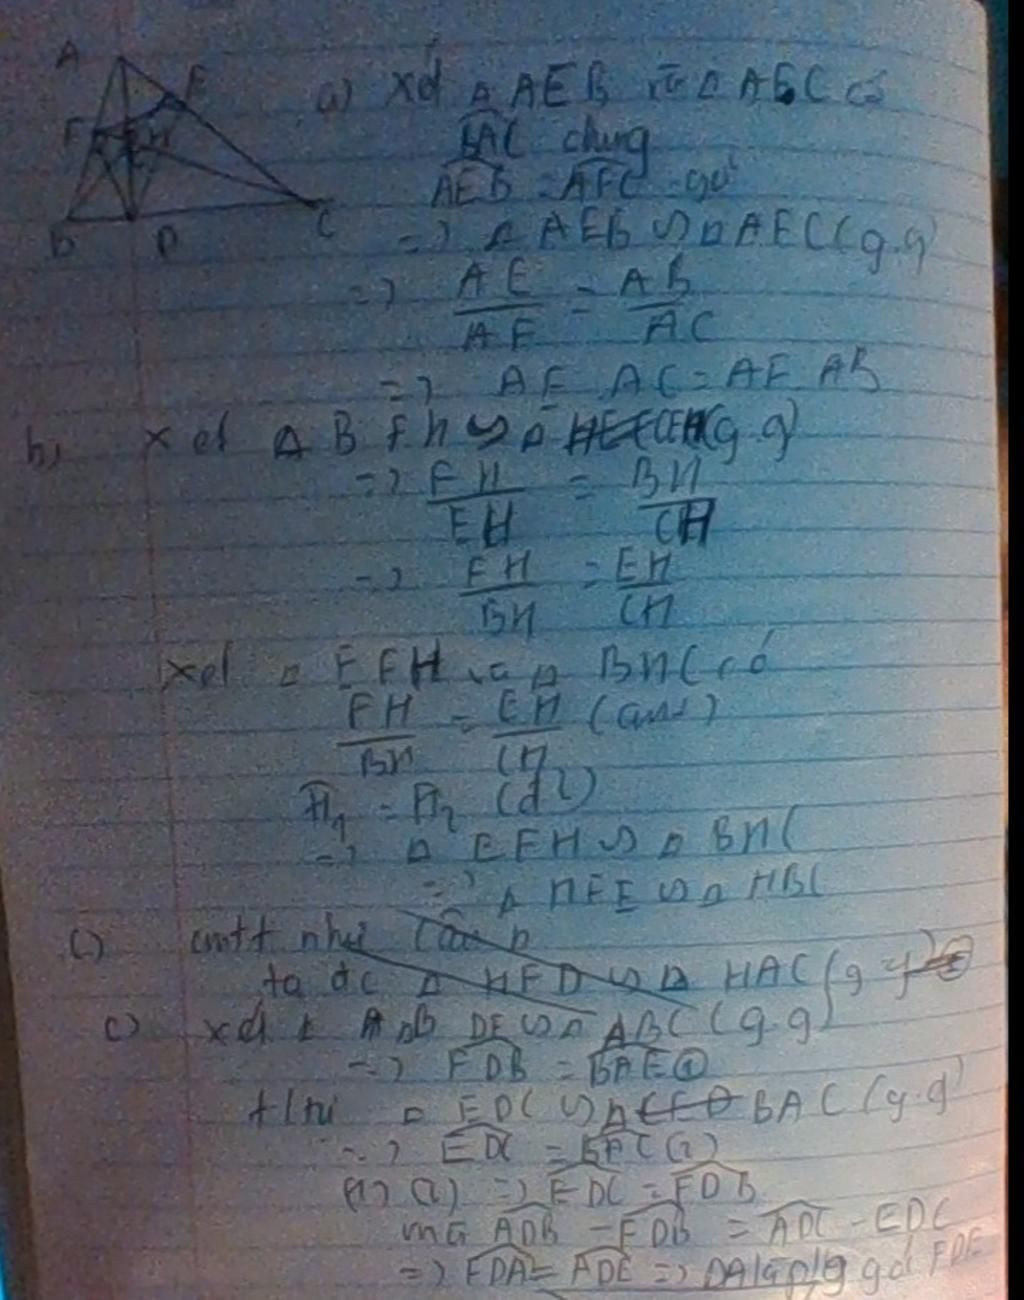 A
E
F
H
B D C
a) xét Δ AEB và Δ AFC có
BAC chung
AEB = AFC = 90°
=> Δ AEB ∽ Δ AFC (g.g)
=> AE/AF = AB/AC
=> AE . AC = AF . AB
b) xét Δ BFH ∽ Δ CEH (g.g)
=> FH/EH = BH/CH
=> FH/BH = EH/CH
xét Δ EFH và Δ BHC có
FH/BH = EH/CH (cmt)
H1 = H2 (dd)
=> Δ EFH ∽ Δ BHC
=> Δ HFE ∽ Δ HBC
c) cmtt như câu b
ta đc Δ HFD ∽ Δ HAC (g.g)
c) xét Δ BDF ∽ Δ ABC (g.g)
=> FDB = BAC (1)
Δ EDC ∽ Δ BAC (g.g)
=> EDC = BAC (2)
(1) (2) => EDC = FDB
mà ADB - FDB = ADC - EDC
=> FDA = ADE => DA là p/g góc FDE